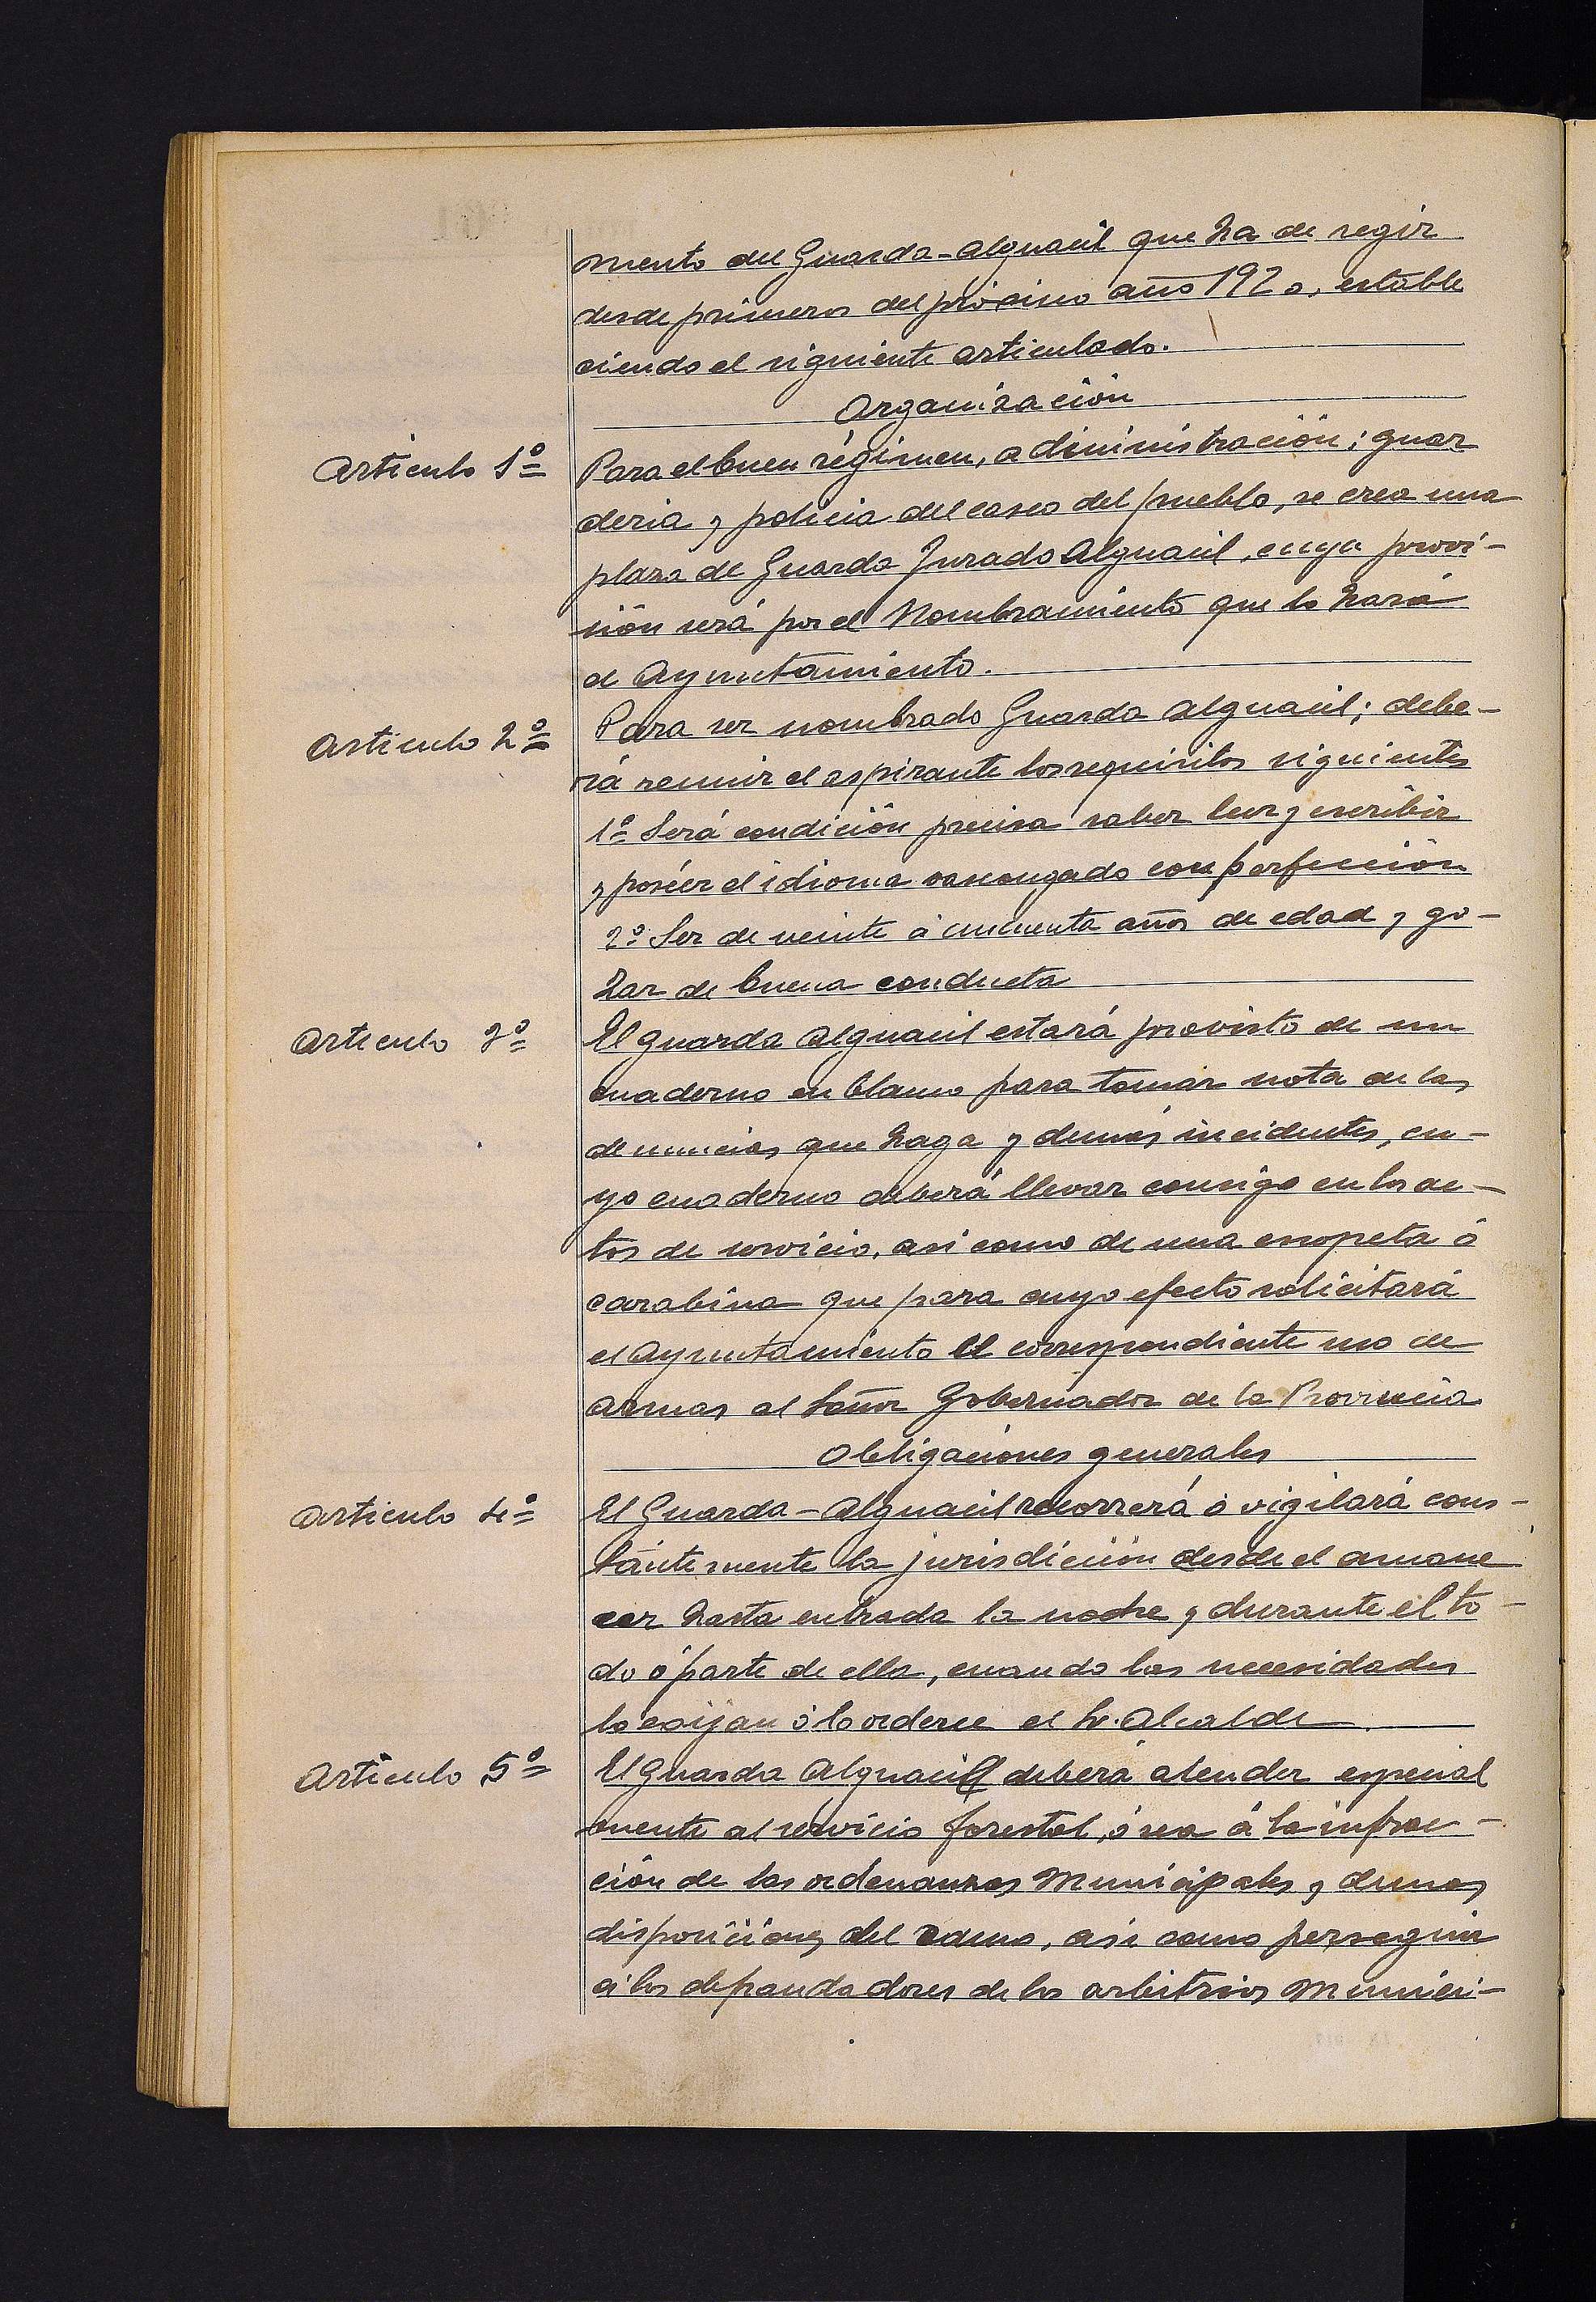 mento del Guarda-Alguacil que ha de regir
desde primeros del próximo año 1920, estable
ciendo el siguiente articulado.
Organización
Articulo 1º
Para el buen régimen, administración; guar
deria y policia del casco del pueblo, se crea una
plaza de Guarda Jurado Alguacil, cuya provi-
sión será por el Nombramiento que lo hará
el Ayuntamiento.
Articulo 2º
Para ser nombrado Guarda alguacil; debe-
rá reunir el aspirante los requisitos siguientes
1º Será condición precisa saber leer y escribir
y poséer el idioma vascongado con perfección
2º Ser de veinte á cincuenta años de edad y go-
zar de buena conducta
Articulo 3º
El guarda alguacil estará provisto de un
cuaderno en blanco para tomar nota de las
denuncias que haga y demás incidentes, cu-
yo cuaderno deberá llevar consigo en los ac-
tos de servicio, asi como de una escopeta ó
carabina que para cuyo efecto solicitará
el Ayuntamiento el correspondiente uso de
armas al Señor Gobernador de la Provincia
Obligaciones generales
Articulo 4º
El Guarda-Alguacil recorrerá ó vigilará cons-
tántemente la jurisdicción desde el amane
cer hasta entrada la noche y durante el to-
do ó parte de ella, cuando las necesidades
lo exijan ó lo ordene el Sr. Alcalde.
Articulo 5º
El Guarda Alguacil deberá atender especial
mente al servicio forestal, ó sea á la infrac-
ción de las ordenanzas Municipales y demas
disposiciones del ramo, asi como perseguir
á los defraudadores de los arbitrios Munici-